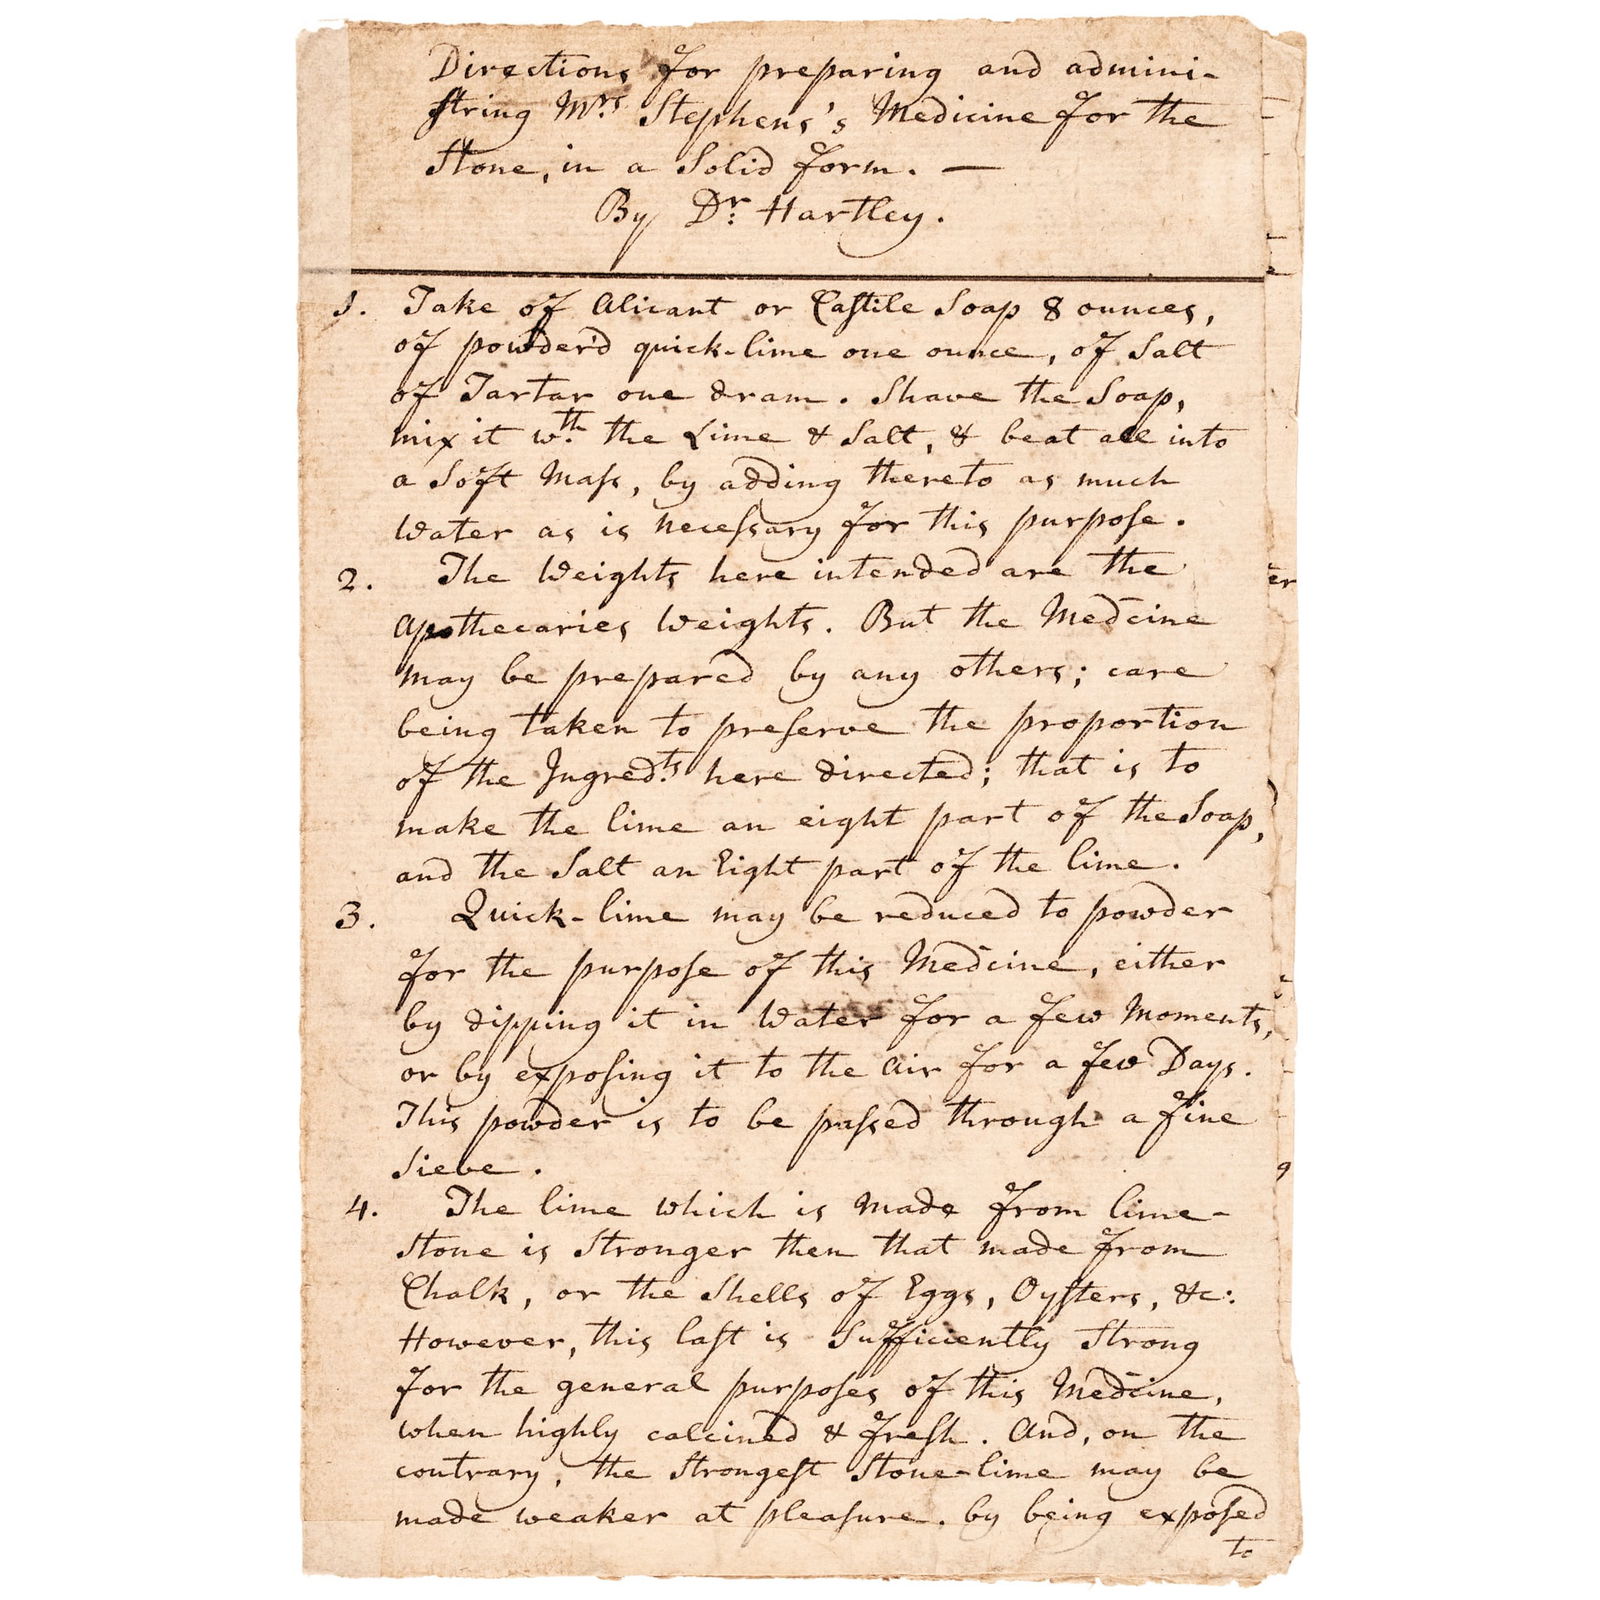 Directions for preparing and admini-
string Mrs. Stephens's Medicine for the
Stone, in a Solid form. —
By Dr: Hartley.
1. Take of Alicant or Castile Soap 8 ounces,
of powder'd quick-lime one ounce, of Salt
of Tartar one dram. Shave the Soap,
mix it wth. the Lime & Salt, & beat all into
a Soft Mass, by adding thereto as much
Water as is necessary for this purpose.
2. The Weights here intended are the
Apothecaries Weights. But the Medcine
may be prepared by any others; care
being taken to preserve the proportion
of the Ingredts. here directed; that is to
make the lime an eight part of the Soap,
and the Salt an Eight part of the lime.
3. Quick-lime may be reduced to powder
for the purpose of this Medcine, either
by dipping it in Water for a few Moments,
or by exposing it to the Air for a few Days.
This powder is to be passed through a fine
Sieve.
4. The lime which is made from lime-
stone is Stronger then that made from
Chalk, or the Shells of Eggs, Oysters, &c:
However, this last is Sufficiently Strong
for the general purposes of this Medcine,
when highly calcined & fresh. And, on the
contrary, the Strongest Stone-lime may be
made weaker at pleasure. by being exposed
to
er